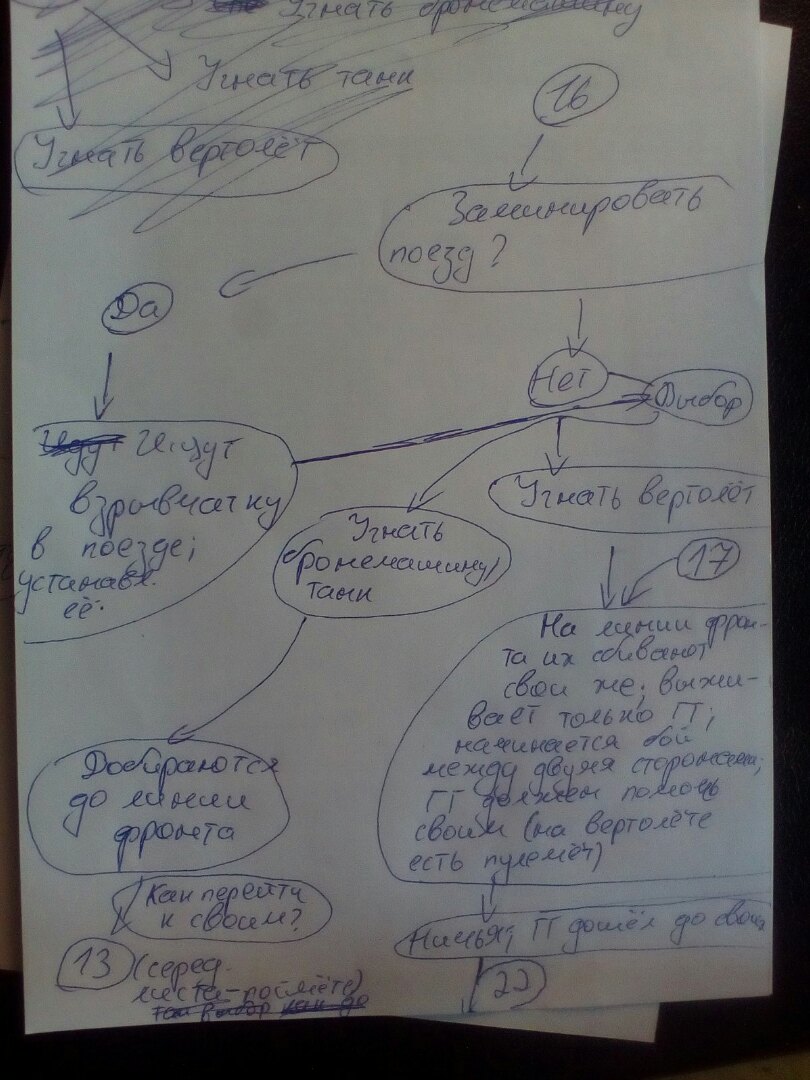 Угнать бронемашину
Угнать танк
Угнать вертолёт
16
Заминировать
поезд?
Да
Нет
Выбор
Ищут
взрывчатку
в поезде;
устанавл.
её.
Угнать
бронемашину/
танк
Угнать вертолёт
17
На линии фрон-
та их сбивают
свои же; выжи-
вает только ГГ;
начинается бой
между двумя сторонами;
ГГ должен помочь
своим (на вертолёте
есть пулемёт)
Добираются
до линии
фронта
Как перейти
к своим?
13 (серед.
листа-поймёте)
там выбор как до
Ничья; ГГ дошёл до своих
22